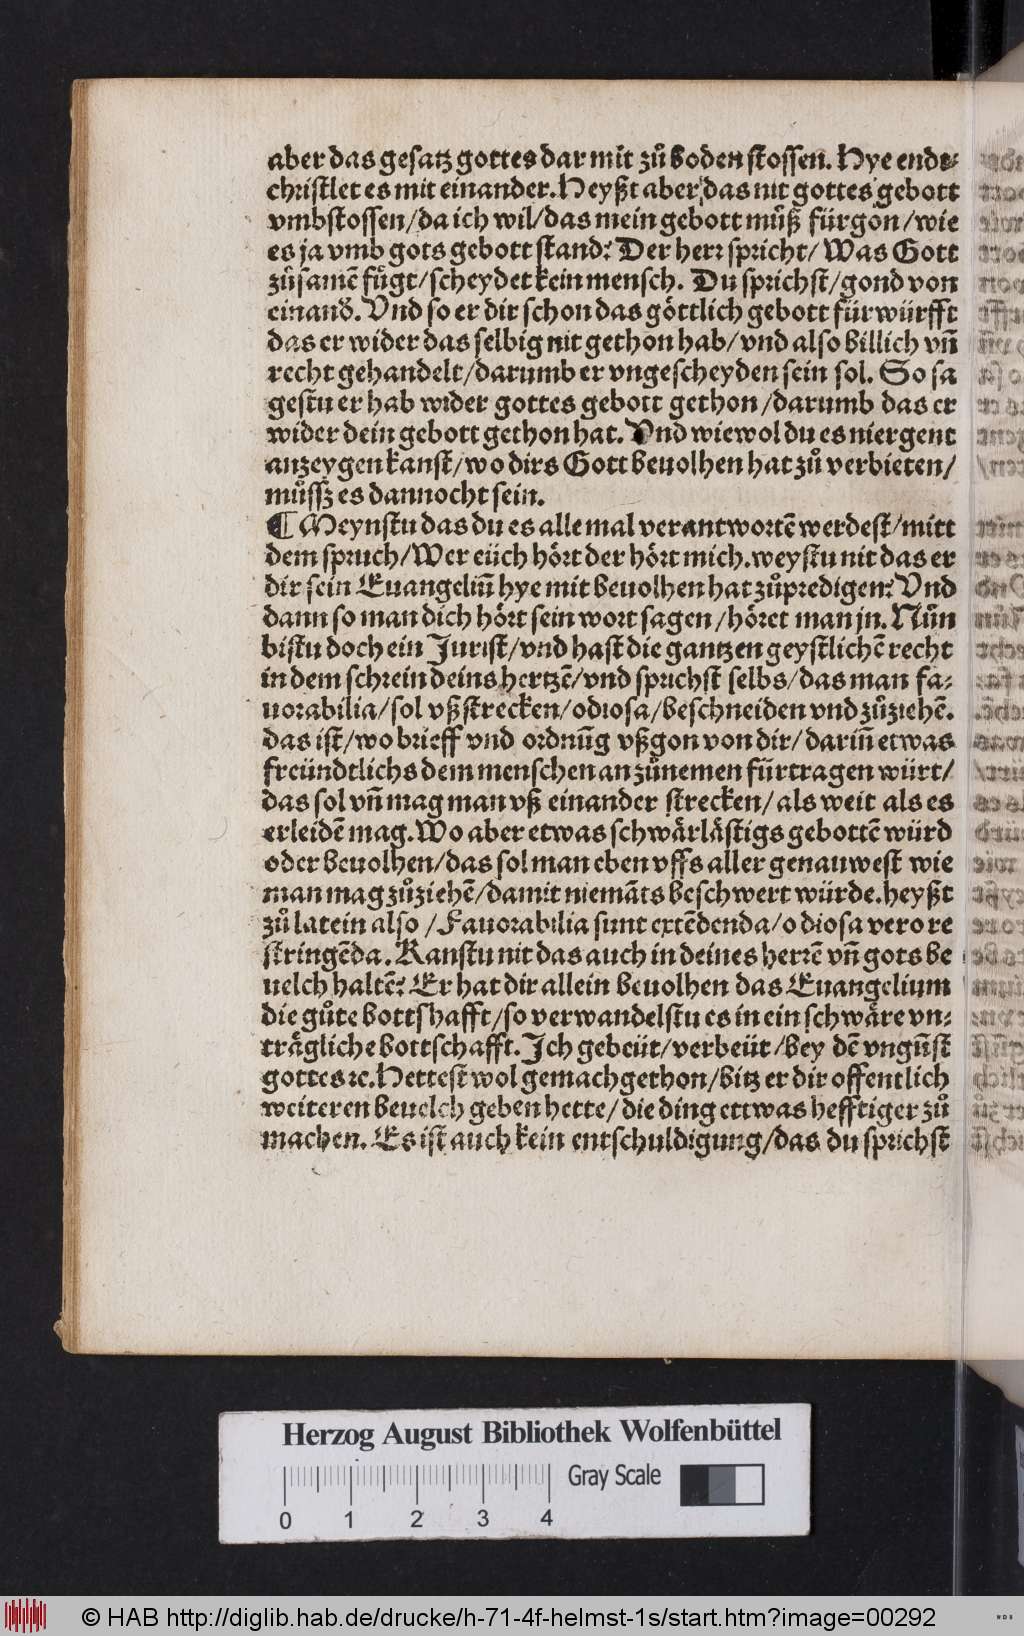 aber das gesatz gottes dar mit zů boden stossen. Hye ende⸗
christlet es mit einander. Heyßt aber das nit gottes gebott
vmbstossen/da ich wil/das mein gebott můß fürgon/wie
es ja vmb gots gebott stand? Der herr spricht/ Was Gott
zůsamē fůgt/scheydet kein mensch. Du sprichst/gond von
einand̃. Vnd so er dir schon das göttlich gebott fürwürfft
das er wider das selbig nit gethon hab/ vnd also billich vñ
recht gehandelt/darumb er vngescheyden sein sol. So sa
gestu er hab wider gottes gebott gethon/darumb das er
wider dein gebott gethon hat. Vnd wiewol du es niergent
anzeygen kanst/wo dirs Gott beuolhen hat zů verbieten/
můssz es dannocht sein.
¶ Meynstu das du es alle mal verantwortē werdest/mitt
dem spruch/Wer eüch hört der hört mich.weystu nit das er
dir sein Euangeliū hye mit beuolhen hat zůpredigen? Vnd
dann so man dich hört sein wort sagen/höret man jn. Nůn
bistu doch ein Jurist/vnd hast die gantzen geystlichē recht
in dem schrein deins hertzē/vnd sprichst selbs/das man fa⸗
uorabilia/sol vßstrecken/odiosa/beschneiden vnd zůziehē.
das ist/wo brieff vnd ordnūg vßgon von dir/dariñ etwas
freündtlichs dem menschen anzůnemen fürtragen würt/
das sol vñ mag man vß einander strecken/als weit als es
erleidē mag. Wo aber etwas schwärlästigs gebottē würd
oder beuolhen/das sol man eben vffs aller genauwest wie
man mag zůziehē/damit niemāts beschwert würde.heyßt
zů latein also/Fauorabilia sunt extēdenda/odiosa vero re
stringēda. Kanstu nit das auch in deines herrē vñ gots be
uelch haltē? Er hat dir allein beuolhen das Euangelium
die gůte bottshafft/so verwandelstu es in ein schwäre vn⸗
trägliche bottschafft. Ich gebeüt/verbeüt/bey dē vngūst
gottes ꝛc. Hettest wol gemach gethon/bitz er dir offentlich
weiteren beuelch geben hette/die ding ettwas hefftiger zů
machen. Es ist auch kein entschuldigung/das du sprichst
Herzog August Bibliothek Wolfenbüttel
Gray Scale
0 1 2 3 4
© HAB http://diglib.hab.de/drucke/h-71-4f-helmst-1s/start.htm?image=00292